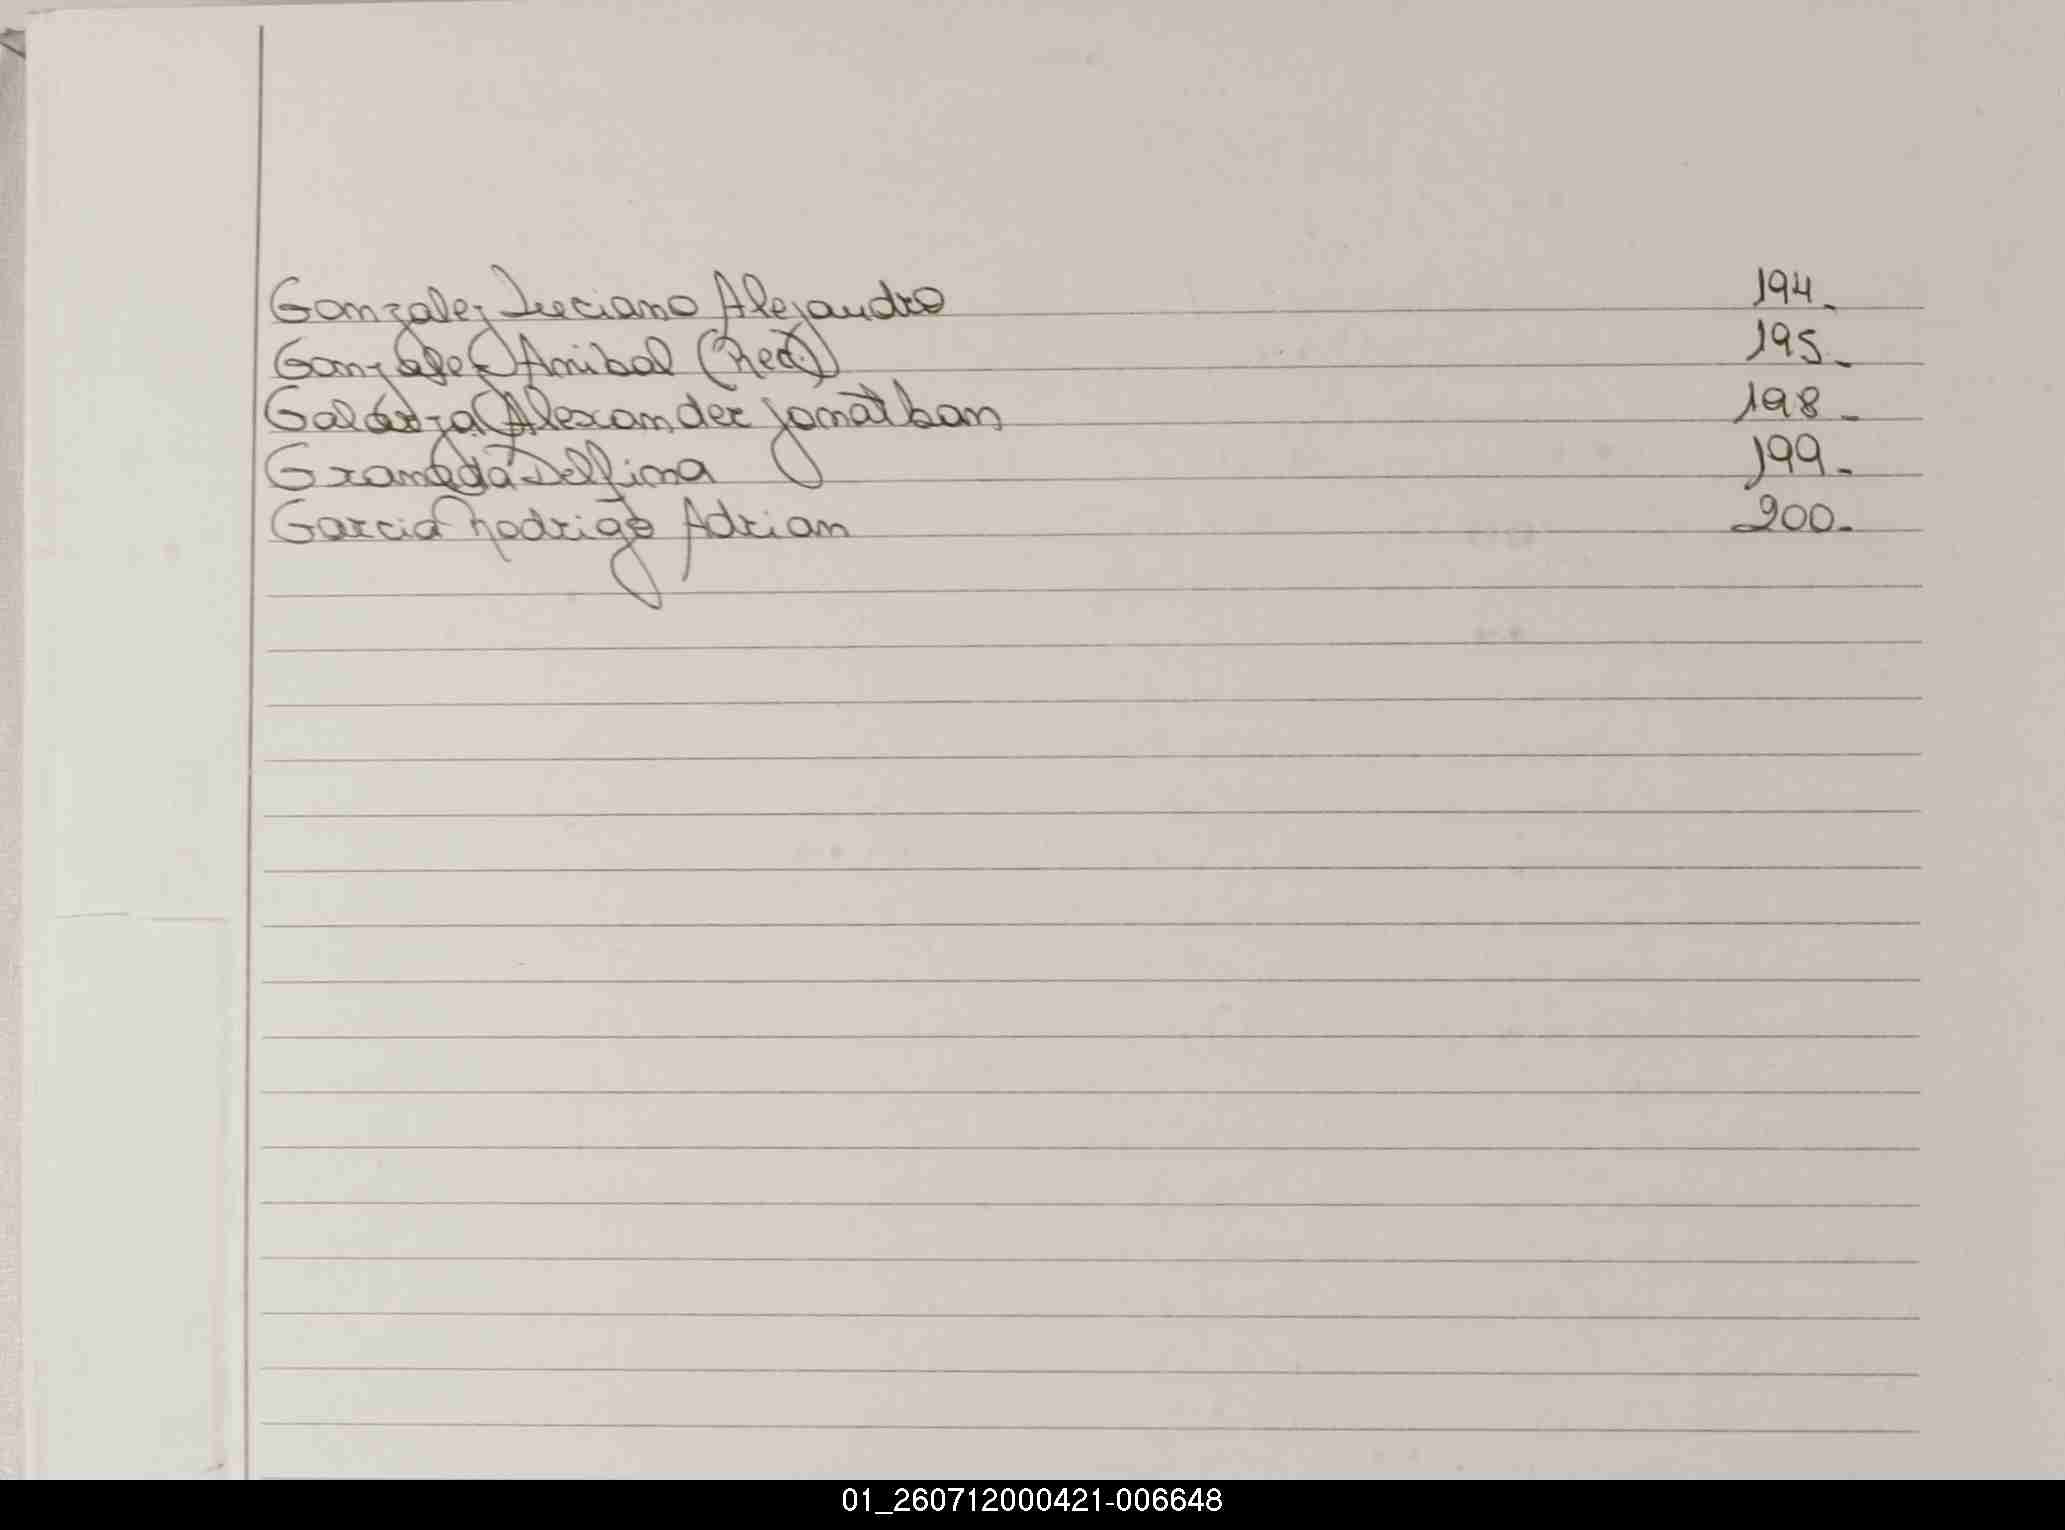 Gonzalez Luciano Alejandro 194.
Gonzalez Anibal (Rec.) 195.
Galarza Alexander Jonathan 198.
Graneda Delfina 199.
Garcia Rodrigo Adrian 200.
01_260712000421-006648